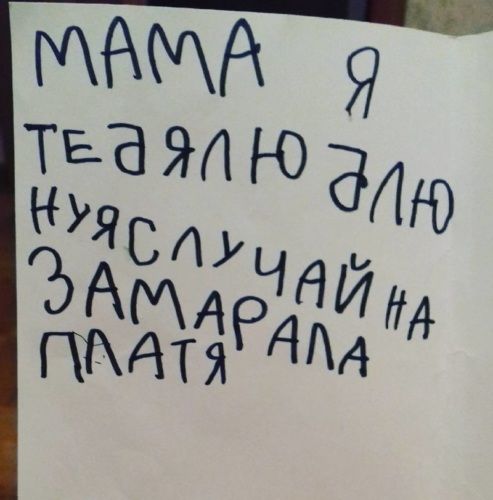 МАМА Я
ТЕБЯЛЮБЛЮ
НУЯСЛУЧАЙНА
ЗАМАРАЛА
ПЛАТЯ